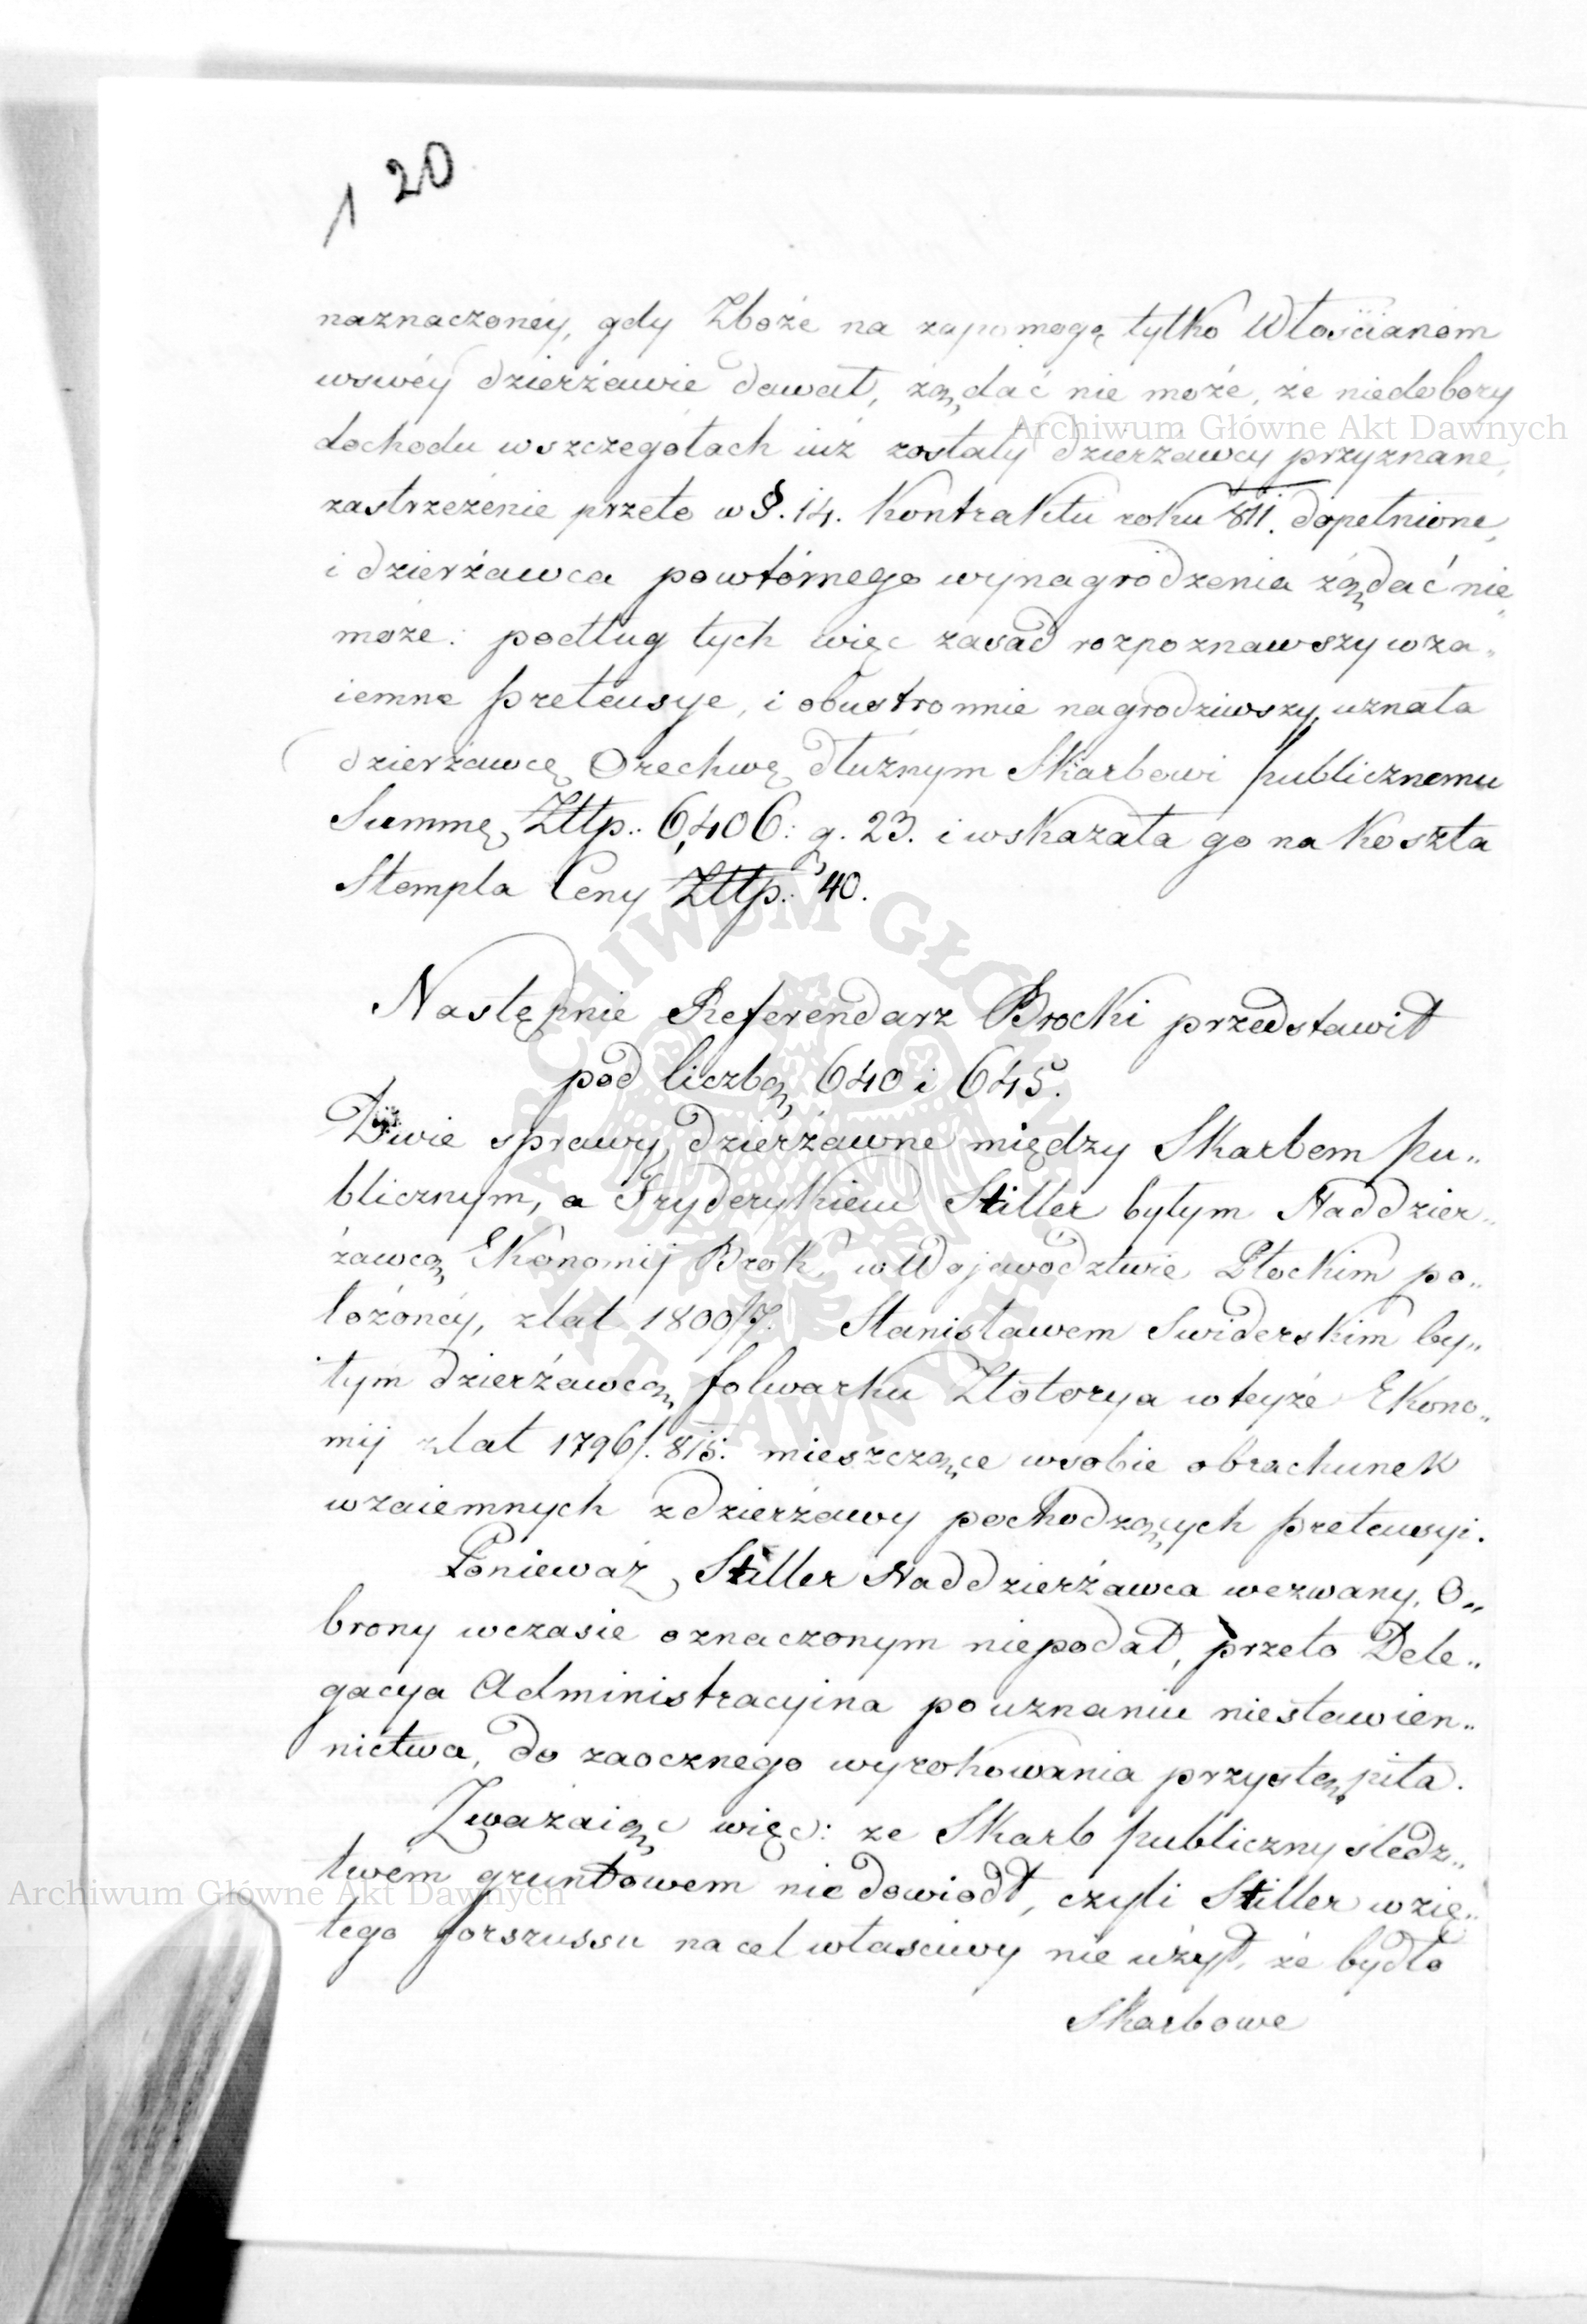 120
naznaczoney, gdy Zboże na zapomogę tylko Włościanom
wswéy dzierżawie dawał, żądać nie może, że niedobory
Archiwum Główne Akt Dawnych
dochodu wszczegółach iuż zostały dzierżawcy przyznane,
zastrzeżenie przeto w §. 14. Kontraktu roku 811. dopełnione,
i dzierżawca powtórnego wynagrodzenia żądać nie
może: podług tych więc zasad rozpoznawszy wza„
iemne pretensye, i obustronnie nagrodziwszy, uznała
dzierżawcę Orechwę dłużnym Skarbowi publicznemu
Summę Złtp: 6,406: g. 23. i wskazała go na koszta
Stempla Ceny Złtp: 40.
Następnie Referendarz Brocki przedstawił
pod liczbą 640 i 645.
Dwie sprawy dzierżawne między Skarbem pu„
blicznym, a Fryderykiem Stiller byłym Naddzier„
żawcą Ekonomij Brok w Wojawodztwie Płockim po„
łożonéy, zlat 1800/7. Stanisławem Swiderskim by„
łym dzierżawcą folwarku Złotorya wteyże Ekono„
mij zlat 1796/.815. mieszczące wsobie obrachunek
wzaiemnych zdzierżawy pochodzących pretensyi.
Ponieważ Stiller Naddzierżawca wezwany, O„
brony wczasie oznaczonym niepodał, przeto Dele„
gacya Administracyina po uznaniu niestawien„
nictwa, do zaocznego wyrokowania przystąpiła.
Zważaiąc więc: ze Skarb publiczny sledz„
twém gruntowem nie dowiodł, czyli Stiller wzię„
Archiwum Główne Akt Dawnych
tego forszussu na cel własciwy nie użył, że bydło
Skarbowe
ARCHIWUM GŁÓWNE AKT DAWNYCH